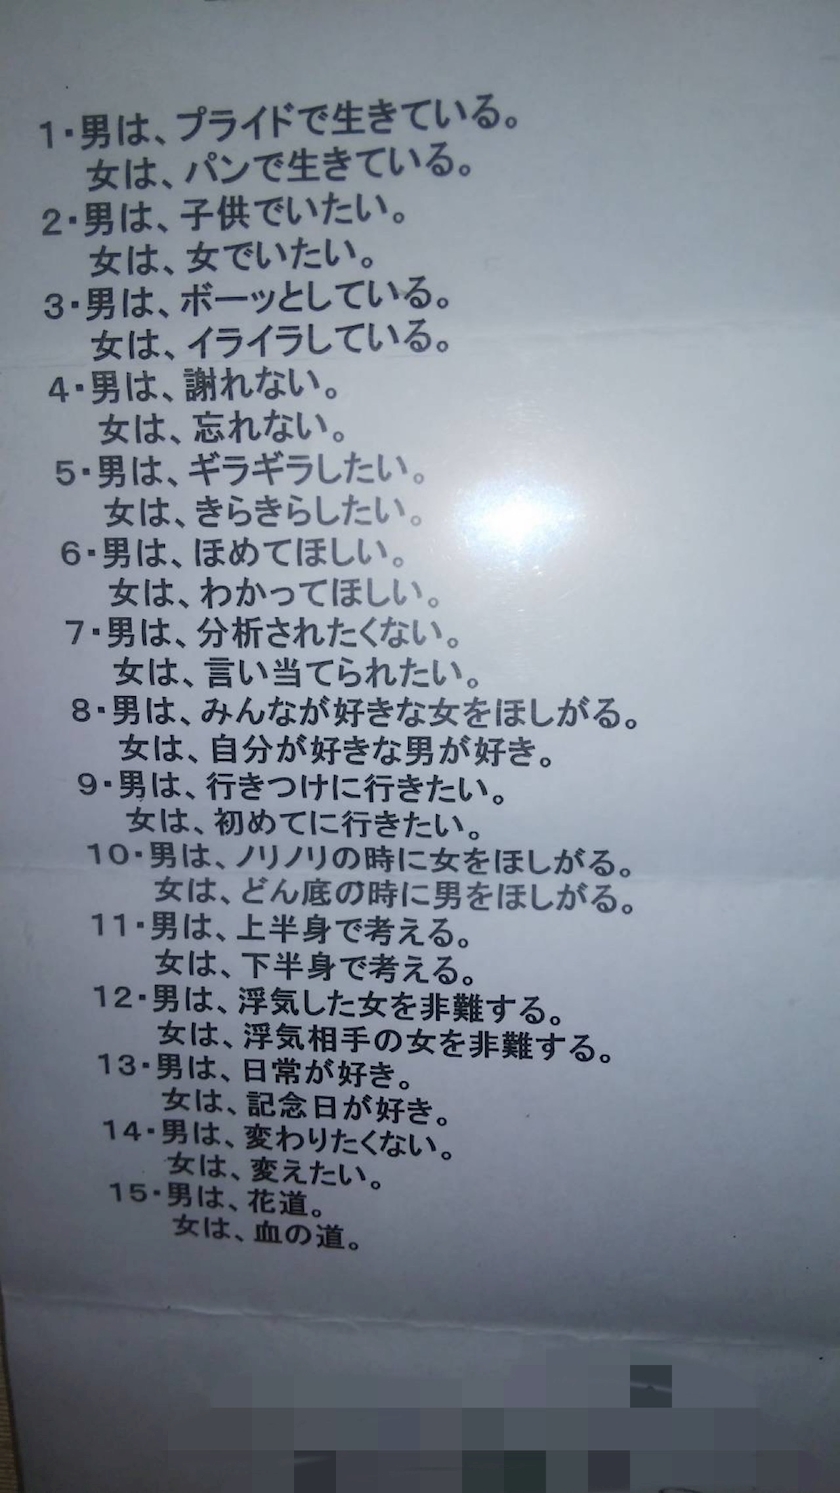 1・男は、プライドで生きている。
女は、パンで生きている。
2・男は、子供でいたい。
女は、女でいたい。
3・男は、ボーッとしている。
女は、イライラしている。
4・男は、謝れない。
女は、忘れない。
5・男は、ギラギラしたい。
女は、きらきらしたい。
6・男は、ほめてほしい。
女は、わかってほしい。
7・男は、分析されたくない。
女は、言い当てられたい。
8・男は、みんなが好きな女をほしがる。
女は、自分が好きな男が好き。
9・男は、行きつけに行きたい。
女は、初めてに行きたい。
10・男は、ノリノリの時に女をほしがる。
女は、どん底の時に男をほしがる。
11・男は、上半身で考える。
女は、下半身で考える。
12・男は、浮気した女を非難する。
女は、浮気相手の女を非難する。
13・男は、日常が好き。
女は、記念日が好き。
14・男は、変わりたくない。
女は、変えたい。
15・男は、花道。
女は、血の道。